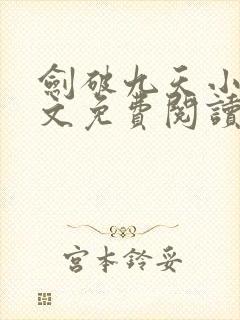 劍破九天小
文免費閱讀
宮本鈴妥